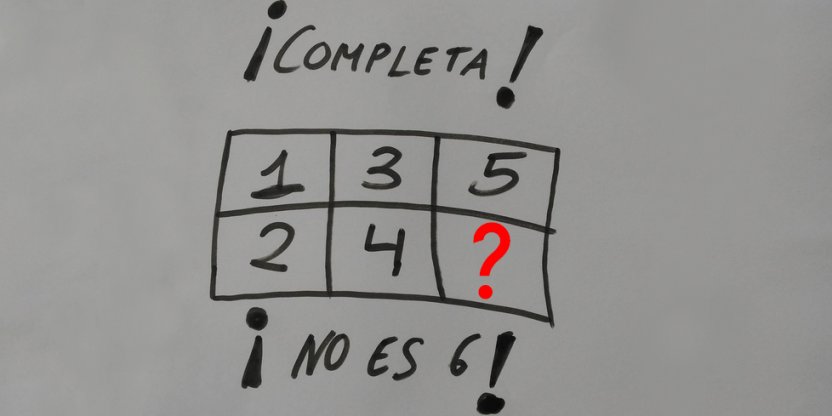 ¡COMPLETA!
1 3 5
2 4 ?
¡NO ES 6!